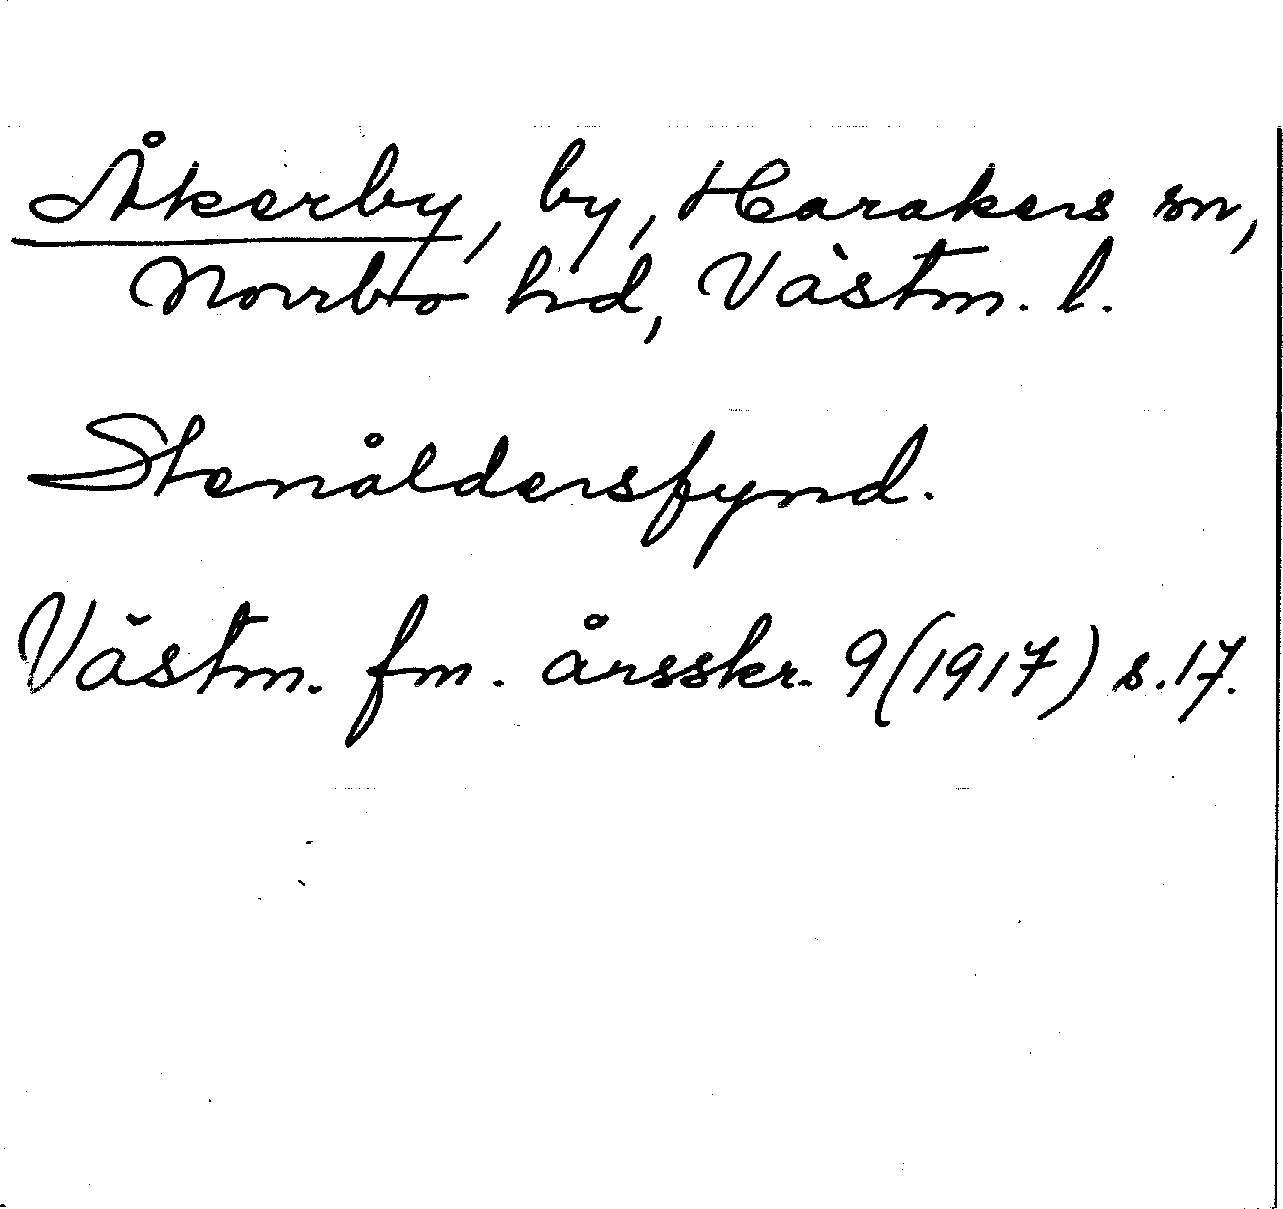 Åkerby, by, Harakers sn,
Norrbo hd, Västm. l.
Stenåldersfynd.
Västm. fm. årsskr. 9 (1917) s. 17.